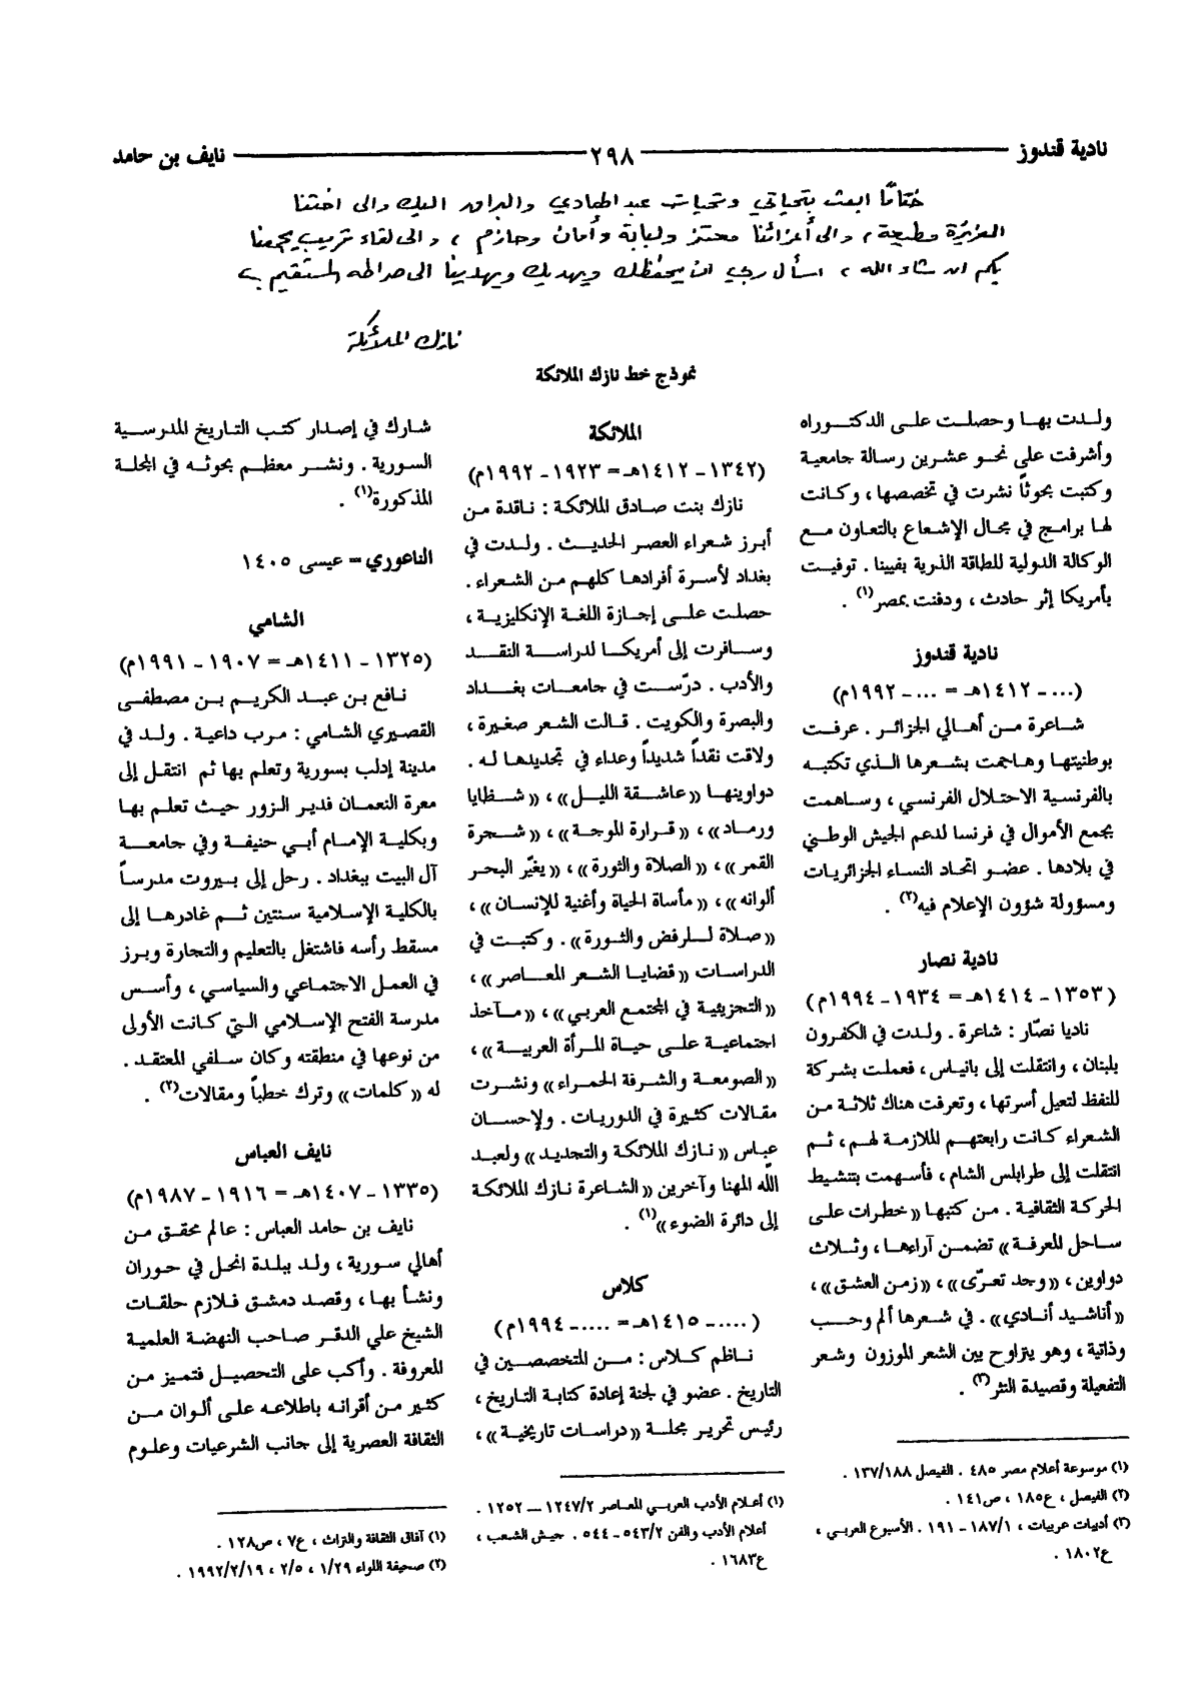 نادية قندوز ــــــ ٢٩٨ ــــــ نايف بن حامد
ختامًا ابعث بتحياتي وتحيات عبد الهادي والبراق اليك والى اختنا
العزيزة مطيعة، والى أعزائنا معتز ولبابة وأمان وحازم، والى لقاء قريب يجمعنا
بكم ان شاء الله، اسأل ربي ان يحفظك ويهديك ويهدينا الى صراطه المستقيم
نازك الملائكة
نموذج خط نازك الملائكة
ولدت بها وحصلت على الدكتوراه
وأشرفت على نحو عشرين رسالة جامعية
وكتبت بحوثاً نشرت في تخصصها ، وكانت
لها برامج في مجال الإشعاع بالتعاون مع
الوكالة الدولية للطاقة الذرية بفيينا . توفيت
بأمريكا إثر حادث ، ودفنت بمصر(١) .
نادية قندوز
(... - ١٤١٢هـ = ... - ١٩٩٢م)
شاعرة من أهالي الجزائر . عرفت
بوطنيتها وهاجمت بشعرها الذي تكتبه
بالفرنسية الاحتلال الفرنسي ، وساهمت
بجمع الأموال في فرنسا لدعم الجيش الوطني
في بلادها . عضو اتحاد النساء الجزائريات
ومسؤولة شؤون الإعلام فيه(٢) .
نادية نصار
(١٣٥٣ - ١٤١٤هـ = ١٩٣٤ - ١٩٩٤م)
ناديا نصّار : شاعرة . ولدت في الكفرون
بلبنان ، وانتقلت إلى بانياس ، فعملت بشركة
للنفط لتعيل أسرتها ، وتعرفت هناك ثلاثة من
الشعراء كانت رابعتهم الملازمة لهم ، ثم
انتقلت إلى طرابلس الشام ، فأسهمت بتنشيط
الحركة الثقافية . من كتبها « خطرات على
ساحل المعرفة » تضمن آراءها ، وثلاث
دواوين ، « وجد تعرّى » ، « زمن العشق » ،
« أناشيد أنادي » . في شعرها ألم وحب
وذاتية ، وهو يتراوح بين الشعر الموزون وشعر
التفعيلة وقصيدة النثر(٣) .
(١) موسوعة أعلام مصر ٤٨٥ . الفيصل ١٣٧/١٨٨ .
(٢) الفيصل ، ع١٨٥ ، ص١٤١ .
(٣) أديبات عربيات ، ١٨٧/١ - ١٩١ . الأسبوع العربي ،
ع١٨٠٢ .
الملائكة
(١٣٤٢ - ١٤١٢هـ = ١٩٢٣ - ١٩٩٢م)
نازك بنت صادق الملائكة : ناقدة من
أبرز شعراء العصر الحديث . ولدت في
بغداد لأسرة أفرادها كلهم من الشعراء .
حصلت على إجازة اللغة الإنكليزية ،
وسافرت إلى أمريكا لدراسة النقد
والأدب . درّست في جامعات بغداد
والبصرة والكويت . قالت الشعر صغيرة ،
ولاقت نقداً شديداً وعداء في تجديدها له .
دواوينها « عاشقة الليل » ، « شظايا
ورماد » ، « قرارة الموجة » ، « شجرة
القمر » ، « الصلاة والثورة » ، « يغيّر البحر
ألوانه » ، « مأساة الحياة وأغنية للإنسان » ،
« صلاة للرفض والثورة » . وكتبت في
الدراسات « قضايا الشعر المعاصر » ،
« التجزيئية في المجتمع العربي » ، « مآخذ
اجتماعية على حياة المرأة العربية » ،
« الصومعة والشرفة الحمراء » ونشرت
مقالات كثيرة في الدوريات . ولإحسان
عباس « نازك الملائكة والتجديد » ولعبد
اللّه المهنا وآخرين « الشاعرة نازك الملائكة
إلى دائرة الضوء »(١) .
كلاس
(.... - ١٤١٥هـ = .... - ١٩٩٤م)
ناظم كلاس : من المتخصصين في
التاريخ . عضو في لجنة إعادة كتابة التاريخ ،
رئيس تحرير مجلة « دراسات تاريخية » ،
(١) أعلام الأدب العربي المعاصر ١٢٤٧/٢ ــ ١٢٥٢ .
أعلام الأدب والفن ٥٤٣/٢ - ٥٤٤ . جيش الشعب ،
ع١٦٨٣ .
شارك في إصدار كتب التاريخ المدرسية
السورية . ونشر معظم بحوثه في المجلة
المذكورة(١) .
الناعوري = عيسى ١٤٠٥
الشامي
(١٣٢٥ - ١٤١١هـ = ١٩٠٧ - ١٩٩١م)
نافع بن عبد الكريم بن مصطفى
القصيري الشامي : مرب داعية . ولد في
مدينة إدلب بسورية وتعلم بها ثم انتقل إلى
معرة النعمان فدير الزور حيث تعلم بها
وبكلية الإمام أبي حنيفة وفي جامعة
آل البيت ببغداد . رحل إلى بيروت مدرساً
بالكلية الإسلامية سنتين ثم غادرها إلى
مسقط رأسه فاشتغل بالتعليم والتجارة وبرز
في العمل الاجتماعي والسياسي ، وأسس
مدرسة الفتح الإسلامي التي كانت الأولى
من نوعها في منطقته وكان سلفي المعتقد .
له « كلمات » وترك خطباً ومقالات(٢) .
نايف العباس
(١٣٣٥ - ١٤٠٧هـ = ١٩١٦ - ١٩٨٧م)
نايف بن حامد العباس : عالم محقق من
أهالي سورية ، ولد ببلدة انخل في حوران
ونشأ بها ، وقصد دمشق فلازم حلقات
الشيخ علي الدقر صاحب النهضة العلمية
المعروفة . وأكب على التحصيل فتميز من
كثير من أقرانه باطلاعه على ألوان من
الثقافة العصرية إلى جانب الشرعيات وعلوم
(١) آفاق الثقافة والتراث ، ع٧ ، ص١٢٨ .
(٢) صحيفة اللواء ١/٢٩ ، ٢/٥ ، ١٩٩٢/٢/١٩ .